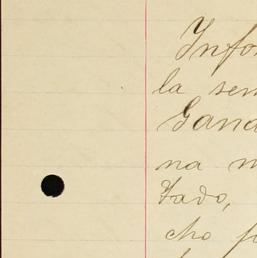 Infor
la sem
Gana
na m
tado,
cho p